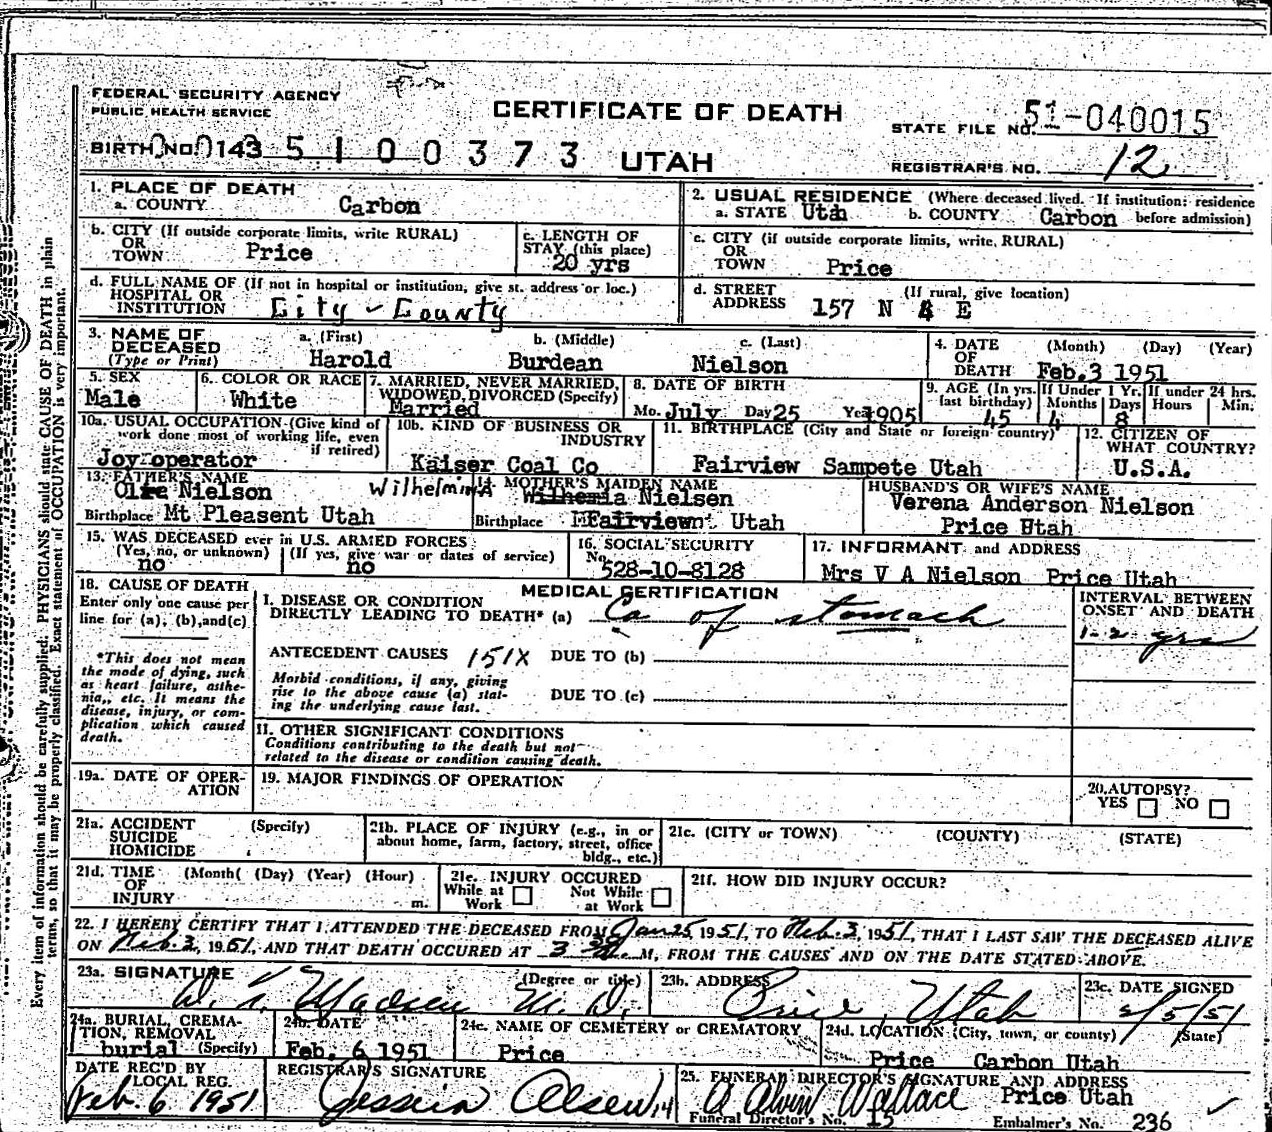 FEDERAL SECURITY AGENCY
PUBLIC HEALTH SERVICE
CERTIFICATE OF DEATH
STATE FILE NO. 51-040015
BIRTH NO. 0143 5 1 0 0 3 7 3 UTAH
REGISTRAR'S NO. 12
1. PLACE OF DEATH
a. COUNTY Carbon
2. USUAL RESIDENCE (Where deceased lived. If institution: residence
a. STATE Utah b. COUNTY Carbon before admission)
b. CITY (If outside corporate limits, write RURAL)
OR
TOWN Price
c. LENGTH OF
STAY (this place)
20 yrs
c. CITY (if outside corporate limits, write, RURAL)
OR
TOWN Price
d. FULL NAME OF (If not in hospital or institution, give st. address or loc.)
HOSPITAL OR
INSTITUTION City - County
d. STREET (If rural, give location)
ADDRESS 157 N 4 E
3. NAME OF
DECEASED
(Type or Print)
a. (First) b. (Middle) c. (Last)
Harold Burdean Nielson
4. DATE (Month) (Day) (Year)
OF
DEATH Feb. 3 1951
5. SEX
Male
6. COLOR OR RACE
White
7. MARRIED, NEVER MARRIED,
WIDOWED, DIVORCED (Specify)
Married
8. DATE OF BIRTH
Mo. July Day 25 Year 1905
9. AGE (In yrs. last birthday) 45
If Under 1 Yr. Months Days
4 8
If under 24 hrs. Hours Min.
10a. USUAL OCCUPATION (Give kind of
work done most of working life, even
if retired)
Joy operator
10b. KIND OF BUSINESS OR
INDUSTRY
Kaiser Coal Co
11. BIRTHPLACE (City and State or foreign country)
Fairview Sampete Utah
12. CITIZEN OF
WHAT COUNTRY?
U.S.A.
13. FATHER'S NAME
Nielson
Birthplace Mt Pleasent Utah
14. MOTHER'S MAIDEN NAME
Wilhelmina Nielsen
Birthplace Fairview Utah
HUSBAND'S OR WIFE'S NAME
Verena Anderson Nielson
Price Utah
15. WAS DECEASED ever in U.S. ARMED FORCES?
(Yes, no, or unknown) (If yes, give war or dates of service)
no no
16. SOCIAL SECURITY
No.
528-10-8128
17. INFORMANT and ADDRESS
Mrs V A Nielson Price Utah
18. CAUSE OF DEATH
Enter only one cause per
line for (a), (b), and (c)
*This does not mean
the mode of dying, such
as heart failure, asthe-
nia, etc. It means the
disease, injury, or com-
plication which caused
death.
MEDICAL CERTIFICATION
I. DISEASE OR CONDITION
DIRECTLY LEADING TO DEATH* (a) Ca of stomach
ANTECEDENT CAUSES 151X DUE TO (b)
Morbid conditions, if any, giving
rise to the above cause (a) stat-
ing the underlying cause last.
DUE TO (c)
INTERVAL BETWEEN
ONSET AND DEATH
1-2 yrs
11. OTHER SIGNIFICANT CONDITIONS
Conditions contributing to the death but not
related to the disease or condition causing death.
19a. DATE OF OPER-
ATION
19. MAJOR FINDINGS OF OPERATION
20. AUTOPSY?
YES NO
21a. ACCIDENT (Specify)
SUICIDE
HOMICIDE
21b. PLACE OF INJURY (e.g., in or
about home, farm, factory, street, office
bldg., etc.)
21c. (CITY or TOWN) (COUNTY) (STATE)
21d. TIME (Month( (Day) (Year) (Hour)
OF
INJURY m.
21e. INJURY OCCURED
While at Work Not While at Work
21f. HOW DID INJURY OCCUR?
22. I HEREBY CERTIFY THAT I ATTENDED THE DECEASED FROM Jan 25, 1951, TO Feb. 3, 1951, THAT I LAST SAW THE DECEASED ALIVE
ON Feb. 3, 1951, AND THAT DEATH OCCURED AT 3 M, FROM THE CAUSES AND ON THE DATE STATED ABOVE.
23a. SIGNATURE (Degree or title)
Madsen M.D.
23b. ADDRESS
Price, Utah
23c. DATE SIGNED
2/5/51
24a. BURIAL, CREMA-
TION, REMOVAL
burial (Specify)
24b. DATE
Feb. 6 1951
24c. NAME OF CEMETERY or CREMATORY
Price
24d. LOCATION (City, town, or county) (State)
Price Carbon Utah
DATE REC'D BY
LOCAL REG.
Feb. 6 1951
REGISTRAR'S SIGNATURE
Olsen
25. FUNERAL DIRECTOR'S SIGNATURE AND ADDRESS
Wallace Price Utah
Funeral Director's No. 15 Embalmer's No. 236
Every item of information should be carefully supplied. PHYSICIANS should state CAUSE OF DEATH in plain
terms, so that it may be properly classified. Exact statement of OCCUPATION is very important.